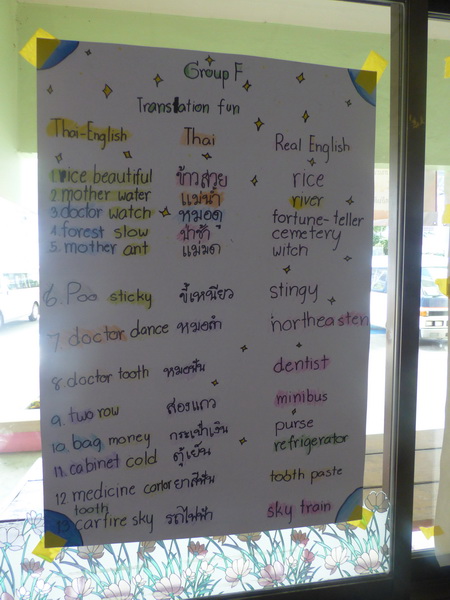 Group F
Translation fun
Thai-English Thai Real English
1 rice beautiful ข้าวสวย rice
2 mother water แม่น้ำ river
3 doctor watch หมอดู fortune-teller
4. forest slow ป่าช้า cemetery
5. mother ant แม่มด witch
6. Poo sticky ขี้เหนียว stingy
7. doctor dance หมอลำ northeasten
8. doctor tooth หมอฟัน dentist
9. two row สองแถว minibus
10. bag money กระเป๋าเงิน purse
11. cabinet cold ตู้เย็น refrigerator
12 medicine ยาสีฟัน tooth paste
tooth
13. car fire sky รถไฟฟ้า sky train